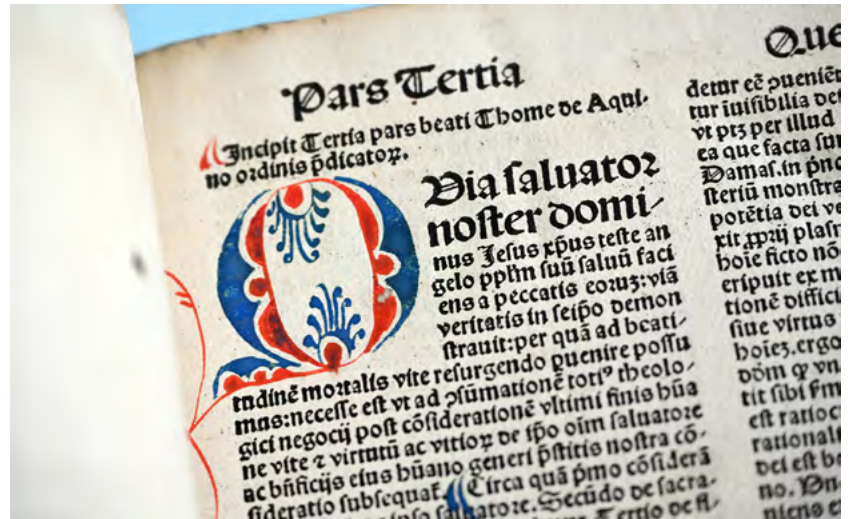 Pars Tertia
Incipit Tertia pars beati Thome de Aqui-
no ordinis p̄dicatoꝝ.
Q Via saluator
noster domi-
nus Jesus xp̄us teste an
gelo pplm̄ suū saluū faci
ens a peccatis eoruꝫ: viā
veritatis in seip̄o demon
strauit: per quā ad beati-
tudinē mortalis vite resurgendo ꝑuenire possu
mus: necesse est vt ad ↄsūmationē totiꝰ theolo-
gici negocij post cōsiderationē vltimi finis hūa
ne vite ⁊ virtutū ac vitioꝝ de ip̄o oīm saluatore
ac bn̄ficijs eius hūano generi p̄stitis nostra cō-
sideratio subsequat̄. Circa quā p̄mo cōsiderā
saluatore. Secūdo de sacra-
Tertio de fi-
Que
detur eē ↄueniēt
tur inuisibilia dei
vt ptꝫ per illud
ea que facta sun
Damas. in p̄nc
steriū monstra
potētia dei ve
xit ꝓprij plasm
hoīe ficto nō
eripuit ex m
tionē difficil
siue virtus
hoīeꝫ. ergo
dōm ꝙ vn
tit sibi s̄m
est ratioc
rationalis
dei est bo
no. Vn
niens e